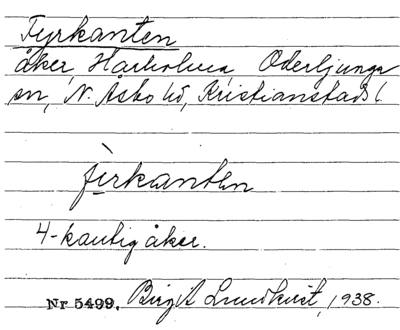 Fyrkanten
åker, Oderljunga
sn, N. Åsbo hd, Kristianstads l.
fi̱rkanten
4-kantig åker.
Nr 5499. Birgit Lundkvist, 1938.